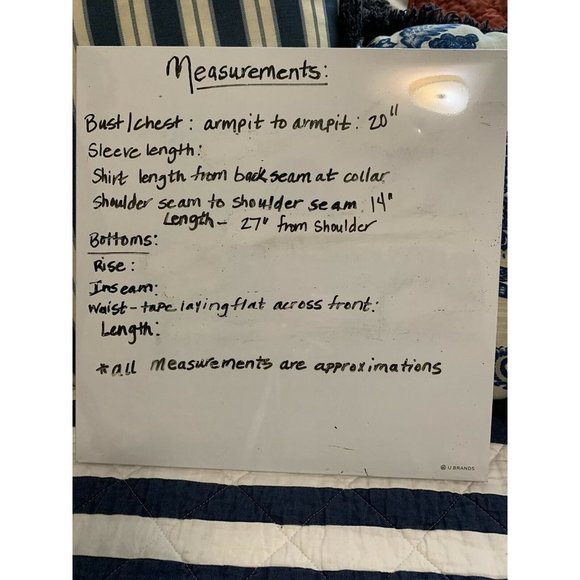 Measurements:
Bust/chest: armpit to armpit: 20"
Sleeve length:
Shirt length from back seam at collar
Shoulder seam to shoulder seam: 14"
Length- 27" from shoulder
Bottoms:
Rise:
Inseam:
Waist-tape laying flat across front:
Length:
*all measurements are approximations
U BRANDS